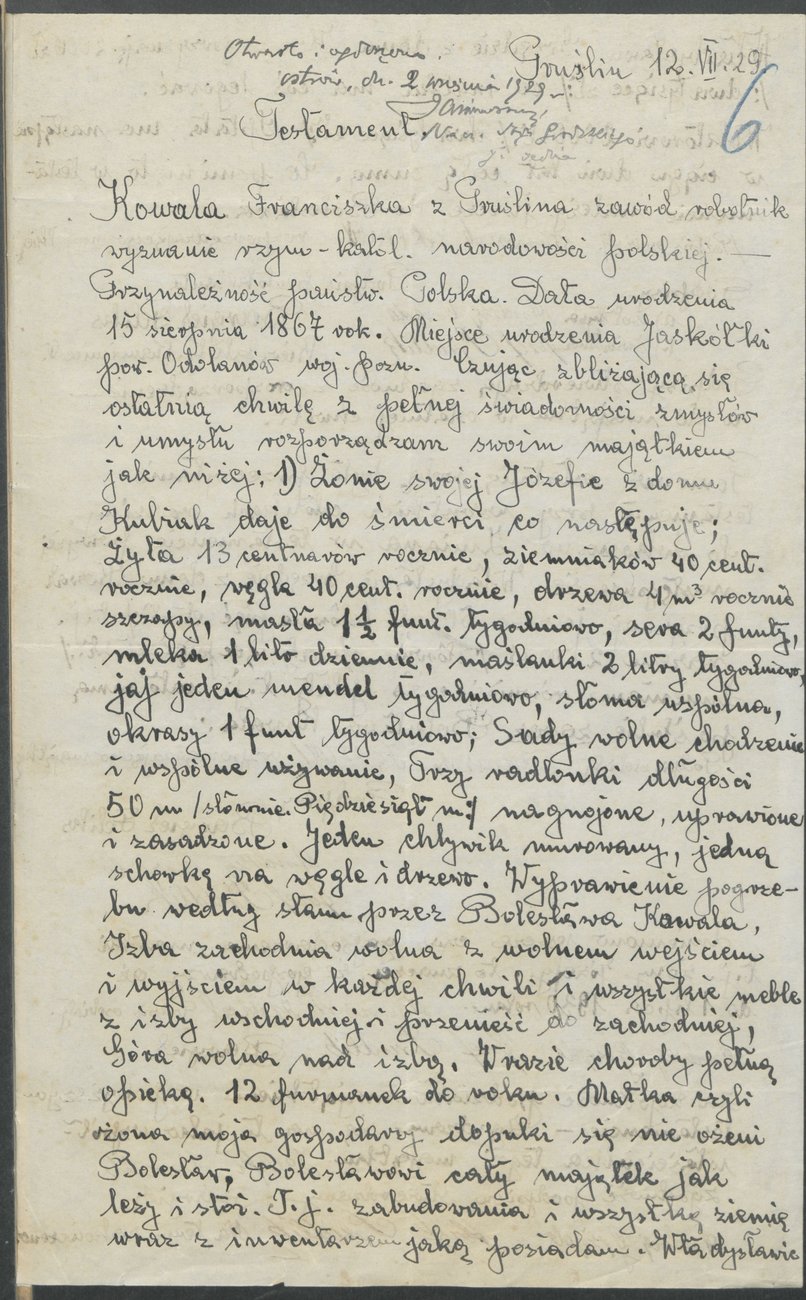 Otwarto i ogłoszono.
Gruślin 12.VII.29
ostrów, dn. 2 września 1929
6
Testament.
Kowala Franciszka z Gruślina zawód robotnik
wyznanie rzym-katol. narodowości polskiej. —
Przynależność państw. Polska. Data urodzenia
15 sierpnia 1867 rok. Miejsce urodzenia Jaskółki
pow. Odolanów woj. pozn. Czując zbliżającą się
ostatnią chwilę z pełnej świadomości zmysłów
i umysłu rozporządzam swoim majątkiem
jak niżej; 1) Żonie swojej Józefie z domu
Kubiak daje do śmierci co następuje;
Żyta 13 centnarów rocznie, ziemniaków 40 cent.
rocznie, węgla 40 cent. rocznie, drzewa 4 m³ rocznie
szczapy, masła 1½ funt. tygodniowo, sera 2 funty,
mleka 1 litr dziennie, maślanki 2 litry tygodniowo,
jaj jeden mendel tygodniowo, słoma wspólna,
okrasy 1 funt tygodniowo; Sady wolne chodzenie
i wspólne używanie, Trzy radlonki długości
50 m /słownie. Pięćdziesiąt m:/ nagnojone, uprawione
i zasadzone. Jeden chlywik murowany, jedną
schowkę na węgle i drzewo. Wyprawienie pogrze-
bu według stanu przez Bolesława Kowala,
Izba zachodnia wolna z wolnem wejściem
i wyjściem w każdej chwili i wszystkie meble
z izby wschodniej i przenieść do zachodniej,
Góra wolna nad izbą. W razie choroby pełną
opiekę. 12 furmanek do roku. Matka czyli
żona moja gospodarzy dopuki się nie ożeni
Bolesław, Bolesławowi cały majątek jak
leży i stoi. T. j. zabudowania i wszystkę ziemię
wraz z inwentarzem jaką posiadam. Władysławie